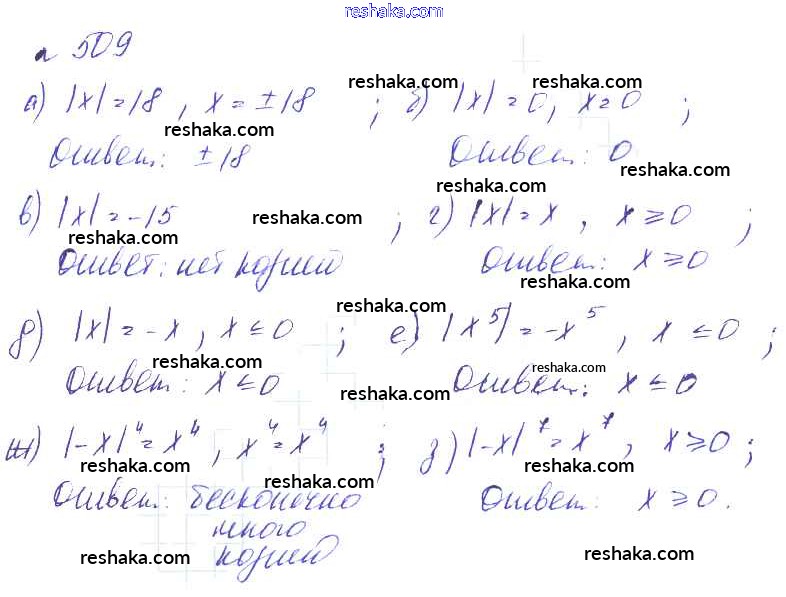 reshaka.com
№ 509
а) |x|=18, x=±18 ; б) |x|=0, x=0 ;
reshaka.com reshaka.com
reshaka.com
Ответ: ±18 Ответ: 0
reshaka.com
в) |x|=-15 ; г) |x|=x, x≥0 ;
reshaka.com reshaka.com
reshaka.com
Ответ: нет корней Ответ: x≥0
reshaka.com
reshaka.com
д) |x|=-x, x≤0 ; е) |x⁵|=-x⁵, x≤0 ;
reshaka.com reshaka.com
Ответ: x≤0 Ответ: x≤0
reshaka.com
ж) |-x|⁴=x⁴, x⁴=x⁴ ; з) |-x|⁷=x⁷, x≥0 ;
reshaka.com reshaka.com
reshaka.com
Ответ: бесконечно Ответ: x≥0.
много
корней
reshaka.com reshaka.com